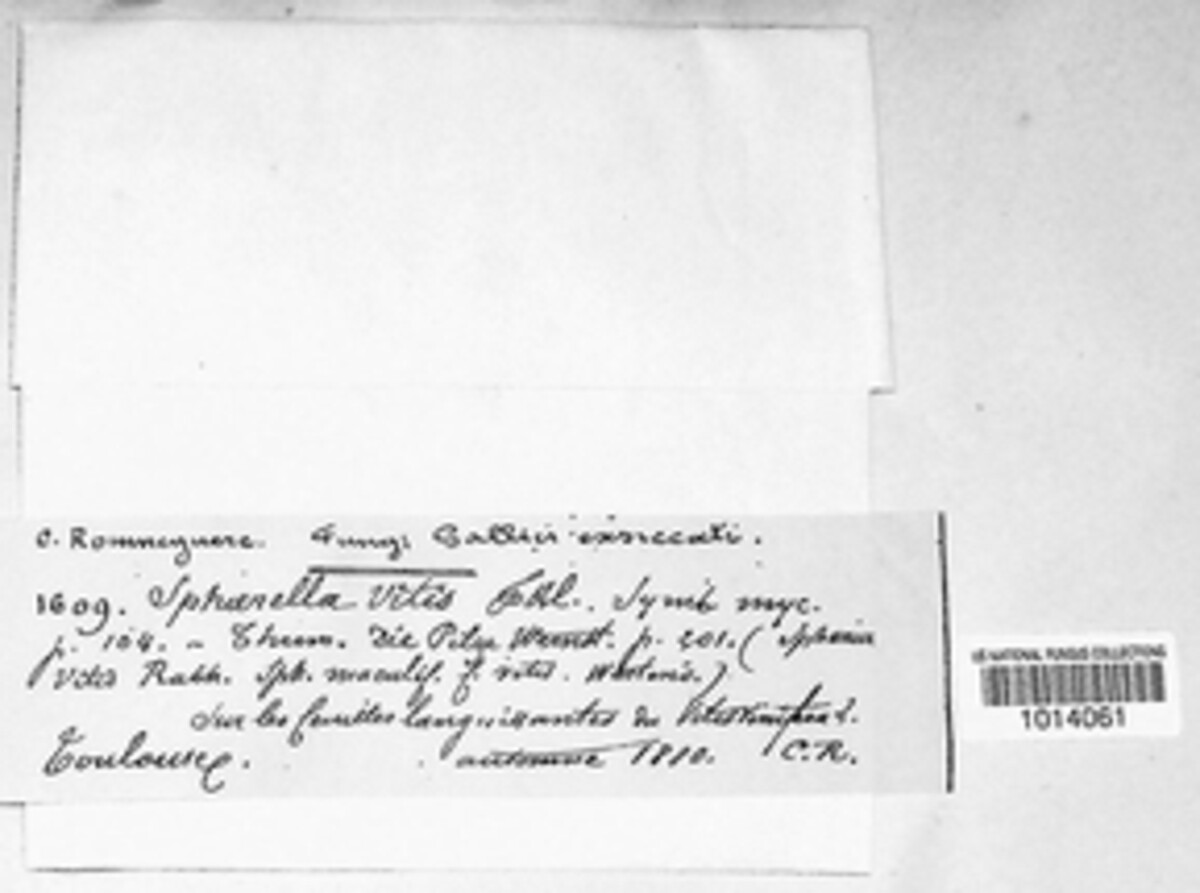 C. Roumeguere. Fungi Gallici exsiccati.
1609. Sphærella Vitis Fckl. Symb myc.
p. 104. - Thum. Die Pilze Weinst. p. 201. (Sphæria
Vitis Rabh. Sph. maculif. f. vitis.
Sur les feuilles languissantes du
Toulouse. automne 1880. C.R.
US NATIONAL FUNGUS COLLECTIONS
1014061